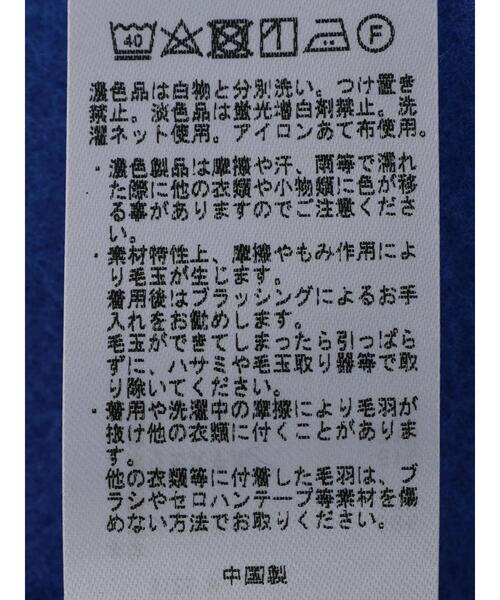 40 F
濃色品は白物と分別洗い。つけ置き
禁止。淡色品は蛍光増白剤禁止。洗
濯ネット使用。アイロンあて布使用。
・濃色製品は摩擦や汗、雨等で濡れ
た際に他の衣類や小物類に色が移
る事がありますのでご注意くださ
い。
・素材特性上、摩擦やもみ作用によ
り毛玉が生じます。
着用後はブラッシングによるお手
入れをお勧めします。
毛玉ができてしまったら引っぱら
ずに、ハサミや毛玉取り器等で取
り除いてください。
・着用や洗濯中の摩擦により毛羽が
抜け他の衣類に付くことがありま
す。
他の衣類等に付着した毛羽は、ブ
ラシやセロハンテープ等素材を傷
めない方法でお取りください。
中国製